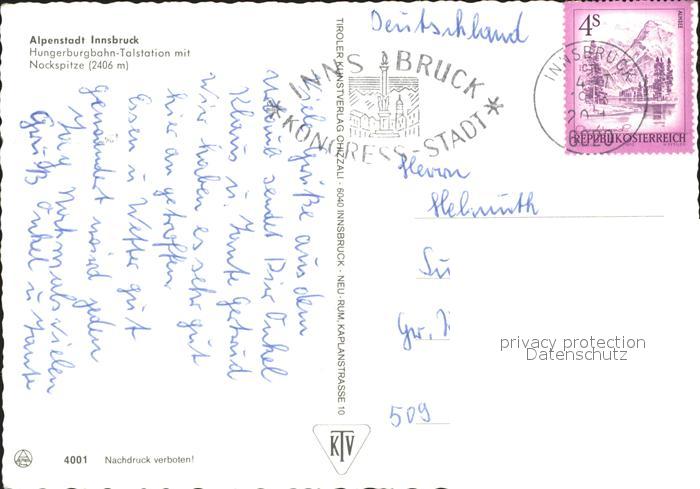 Alpenstadt Innsbruck
Hungerburgbahn-Talstation mit
Nockspitze (2406 m)
Viele Grüße aus dem
sendet Dir Onkel
Klaus u. Tante Gertrud
hier an getroffen
Wir haben es sehr gut
Essen u Wetter gut
gewandert wird jeden
Tag Nochmals vielen
Gruß Onkel u Tante
4001 Nachdruck verboten!
TIROLER KUNSTVERLAG CHIZZALI · 6040 INNSBRUCK · NEU-RUM, KAPLANSTRASSE 10
KTV
Deutschland
INNSBRUCK
*KONGRESS-STADT*
INNSBRUCK
6020
4S
ALMSEE
REPUBLIK ÖSTERREICH
Herrn
Helmuth
509
privacy protection
Datenschutz